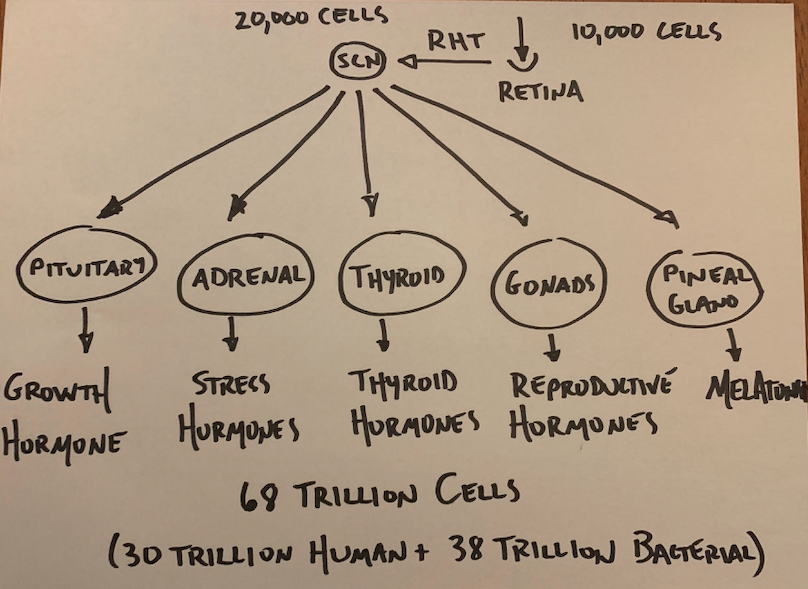 20,000 CELLS
SCN
RHT
10,000 CELLS
RETINA
PITUITARY
ADRENAL
THYROID
GONADS
PINEAL
GLAND
GROWTH
HORMONE
STRESS
HORMONES
THYROID
HORMONES
REPRODUCTIVE
HORMONES
MELATONIN
68 TRILLION CELLS
(30 TRILLION HUMAN + 38 TRILLION BACTERIAL)